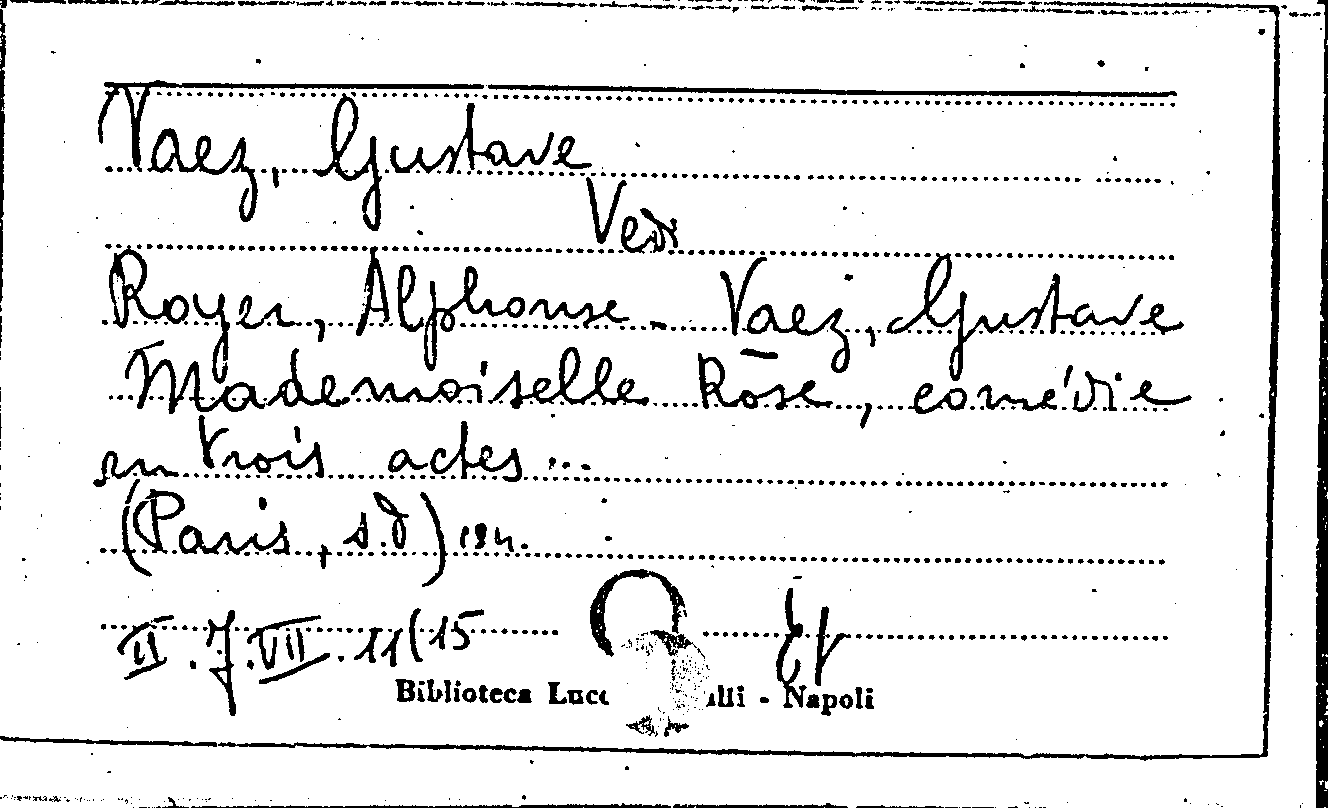 Vaez, Gustave
Vedi
Royer, Alphonse - Vaez, Gustave
Mademoiselle Rose, comédie
en trois actes...
(Paris, s.d)
II.J.VII.11(15
Biblioteca Lucc alli - Napoli